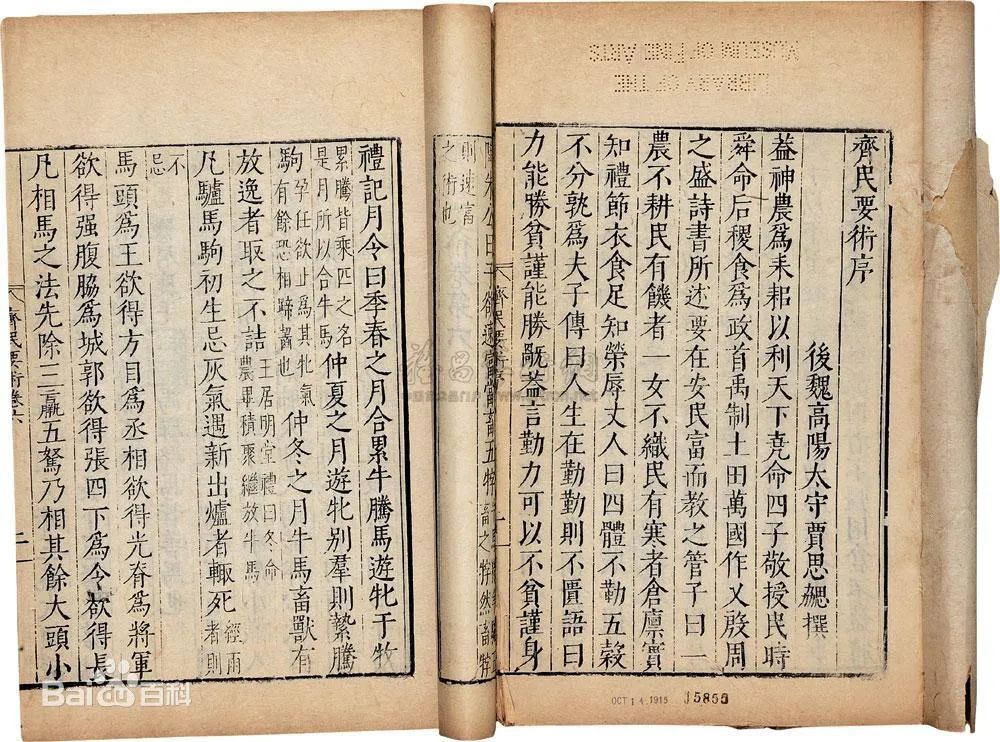 齊民要術序
後魏高陽太守賈思勰撰
葢神農爲耒耜以利天下堯命四子敬授民時
舜命后稷食爲政首禹制土田萬國作乂殷周
之盛詩書所述要在安民富而教之管子曰一
農不耕民有饑者一女不織民有寒者倉廩實
知禮節衣食足知榮辱丈人曰四體不勤五穀
不分孰爲夫子傳曰人生在勤勤則不匱語曰
力能勝貧謹能勝旤葢言勤力可以不貧謹身
齊民要術序
則速富
之術也
禮記月令曰季春之月合累牛騰馬遊牝于牧
累騰皆乗匹之名
是月所以合牛馬
仲夏之月遊牝别羣則縶騰
駒
孕任欲止爲其牝氣
有餘恐相蹄齧也
仲冬之月牛馬畜獸有
放逸者取之不詰
王居明堂禮曰冬命
農畢積聚繼放牛馬
凡驢馬駒初生忌灰氣遇新出爐者輙死
經雨
者則
不
忌
馬頭爲王欲得方目爲丞相欲得光脊爲將軍
欲得强腹脇爲城郭欲得張四下爲令欲得長
凡相馬之法先除三羸五駑乃相其餘大頭小
齊民要術卷六
二
LIBRARY OF THE
MUSEUM OF FINE ARTS
OCT 14 1915
15855
Baidu百科